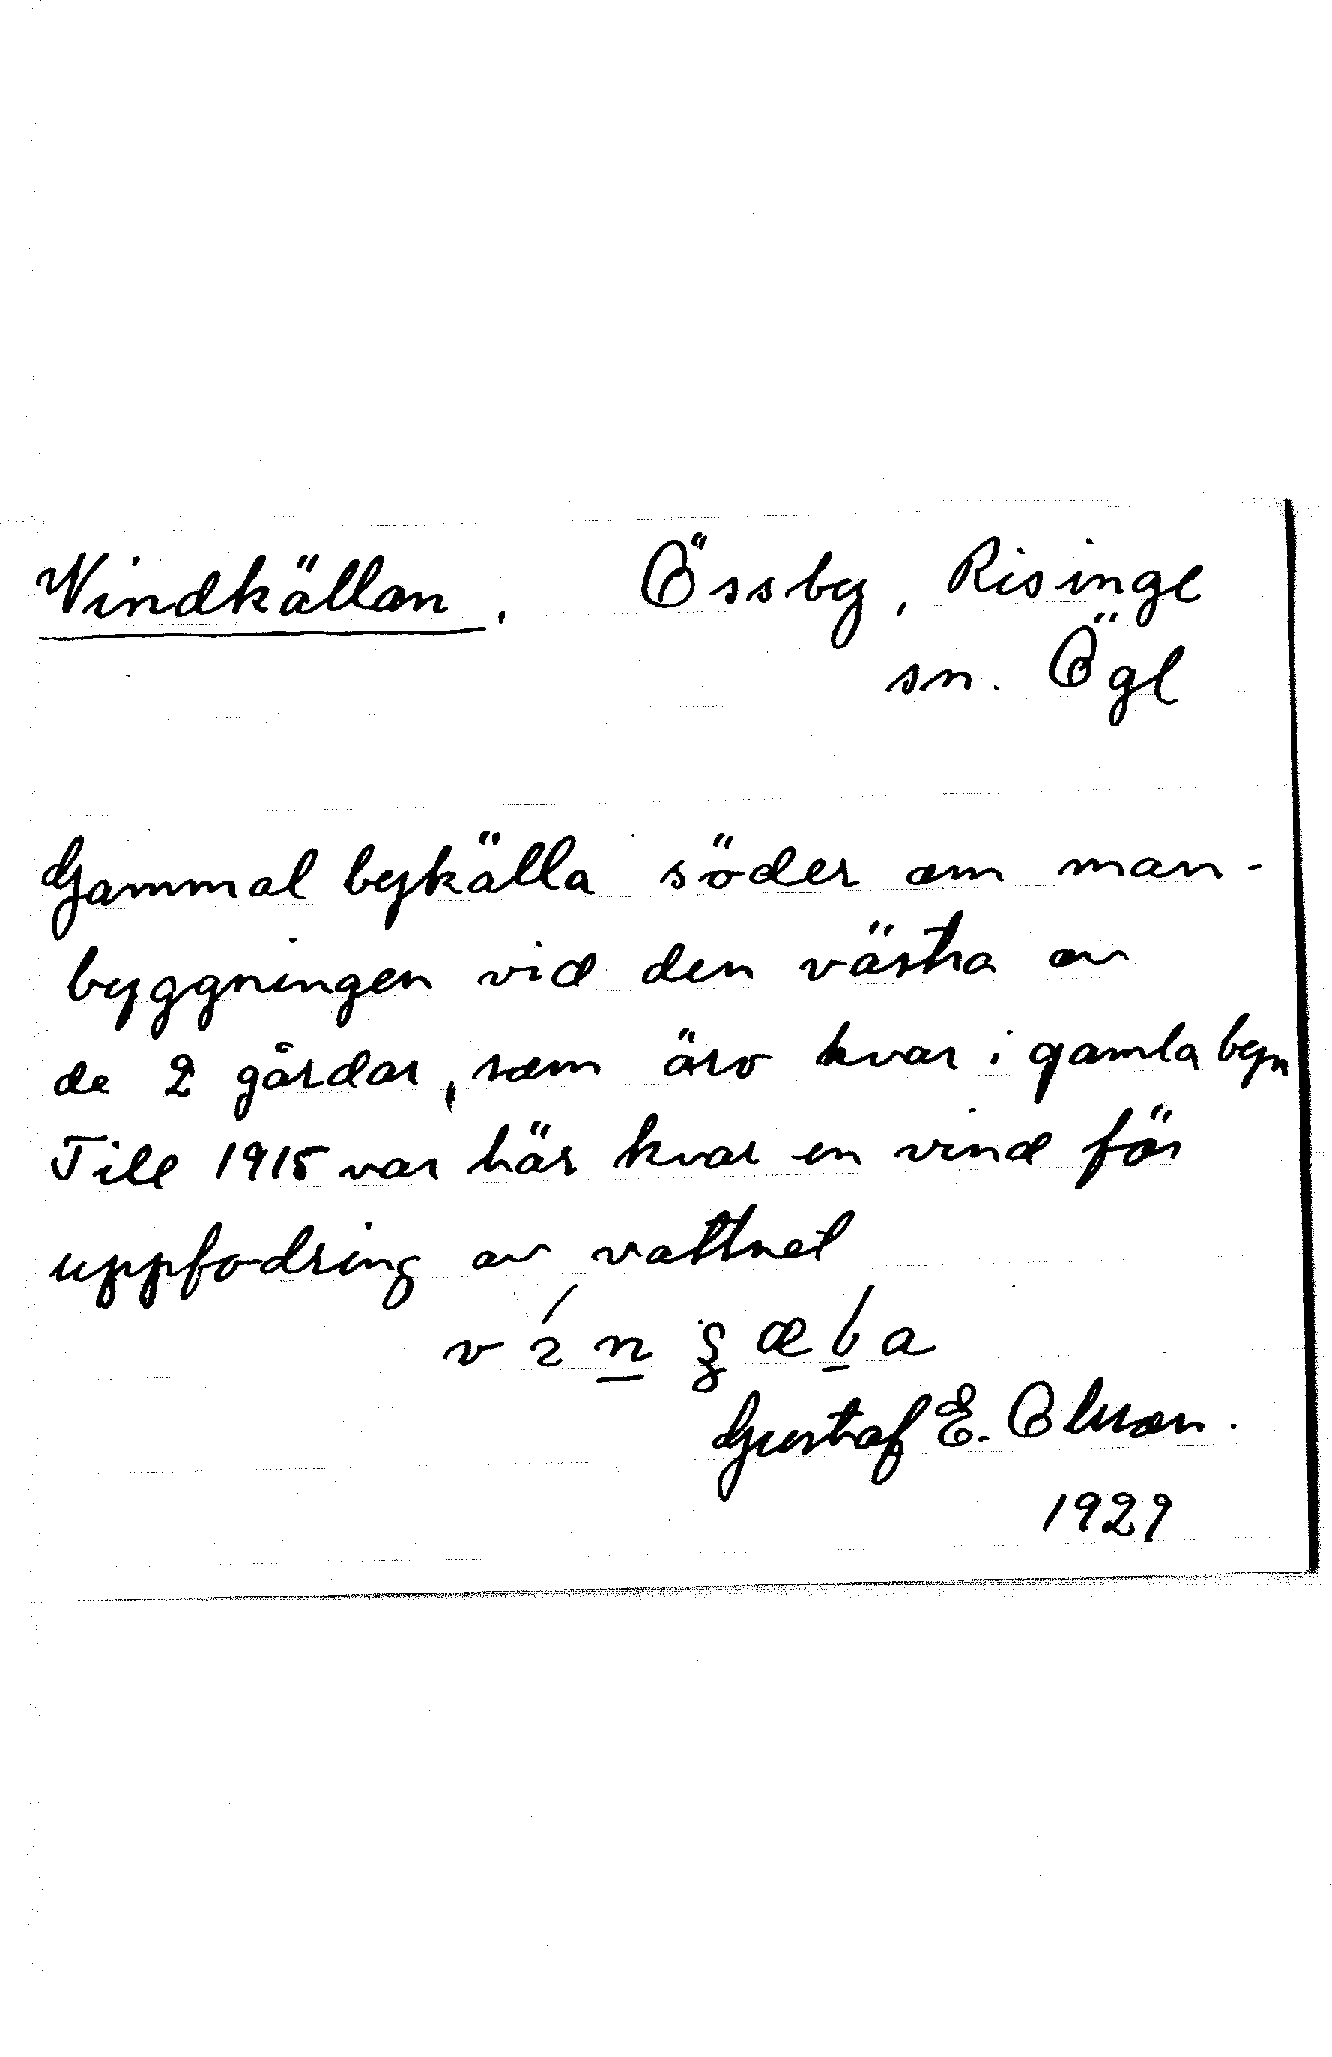 Vindkällan. Össby, Risinge
sn. Ögl
Gammal bykälla söder om man-
byggningen vid den västra av
de 2 gårdar, som äro kvar i gamla byn
Till 1915 var här kvar en vind för
uppfodring av vattnet
Gustaf E. Olsson.
1929